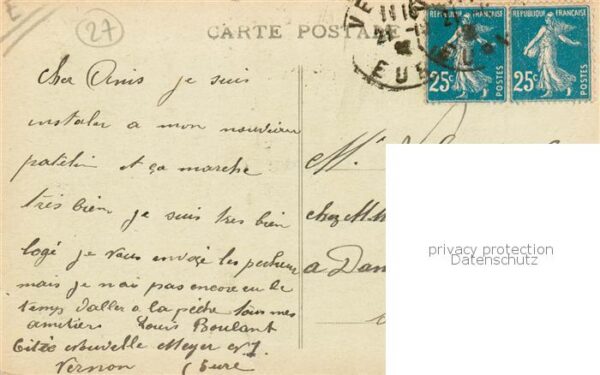 27
E
CARTE POSTALE
EURE
REPUBLIQUE FRANÇAISE
25c POSTES
REPUBLIQUE FRANÇAISE
25c POSTES
Cher Amis je suis
instaler a mon nouvieau
patelin et ça marche
très bien je suis tres bien
logé je vous envoie les pecheurs
mais je n'ai pas encore eu le
temps d'aller a la pêche tous mes
amitiers Louis Boulant
Citée Nouvelle Meyer N° 7
Vernon (Eure
M.
chez M.
a Dan
privacy protection
Datenschutz